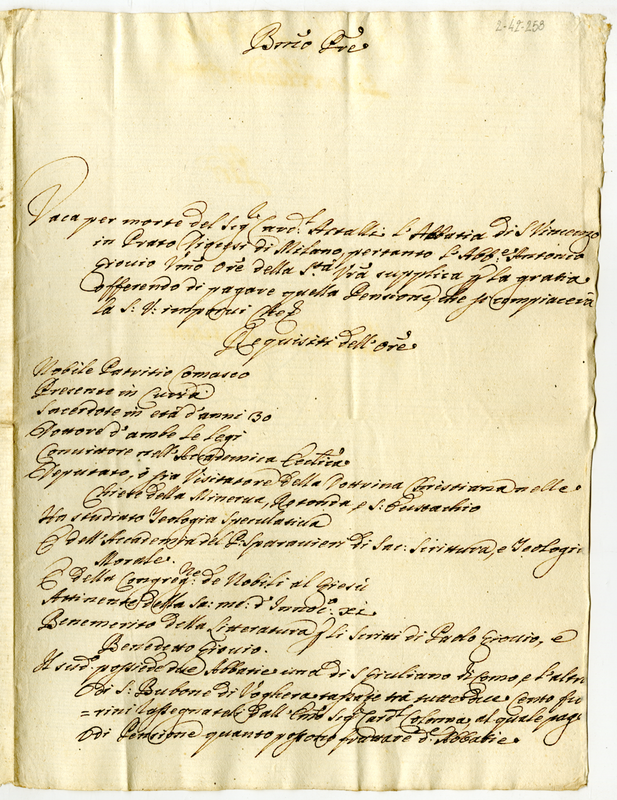 2-42-258
Bmo Pre
Vaca per morte del Sigr Cardl Astalli l'Abbatia di S Vincenzo
in Prato Diocesi di Milano, pertanto l'Abbe Antonio
Giovio Umo Ore della Stà Vra supplica p la gratia
offerendo di pagare quella Pensione, che si compiacerà
la S: V: imporvi che
Requisiti dell'Ore
Nobile Patritio Comasco
Presente in Curia
Sacerdote in età d'anni 30
Dottore d'ambe le Legi
Convittore nell'Academica Ecclica
Deputato, ò sia Visitatore della Dottrina Christiana nelle
Chiese della Minerva, Rotonda, e S: Eustachio
Ha studiato Teologia Speculativa
È dell'Accademia del P: Sparavieri di Sac: Scrittura, e Teologia
Morale
È della Congregne de Nobili al Giesù
Attinente della Sa: me: d'Innoc: xi
Benemerito della Litteratura p li Scritti di Paolo Giovio, e
Benedetto Giovio.
Il sud: possiede due Abbatie una di S Giuliano di Como, e l'altra
di S: Bubone di Voghera tassate trà tutte due Cento fio
=rini assegnateli dall'Emo Sigr Cardl Colonna, al quale paga
di Pensione quanto possono fruttare d: Abbatie